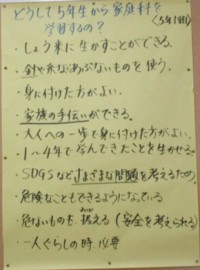 どうして5年生から家庭科を
学習するの？
(5年1組)
・しょう来に生かすことができる。
・針や糸などあぶないものを使う。
・身に付けた方がよい。
・家族の手伝いができる。
・大人への一歩で身に付けた方がよい。
・1～4年で学んできたことを生かせる。
・SDGSなどさまざまな問題を考えるため。
・危険なこともできるようになっている
・危ないものを扱える(安全を考えられる)
・一人ぐらしの時、必要